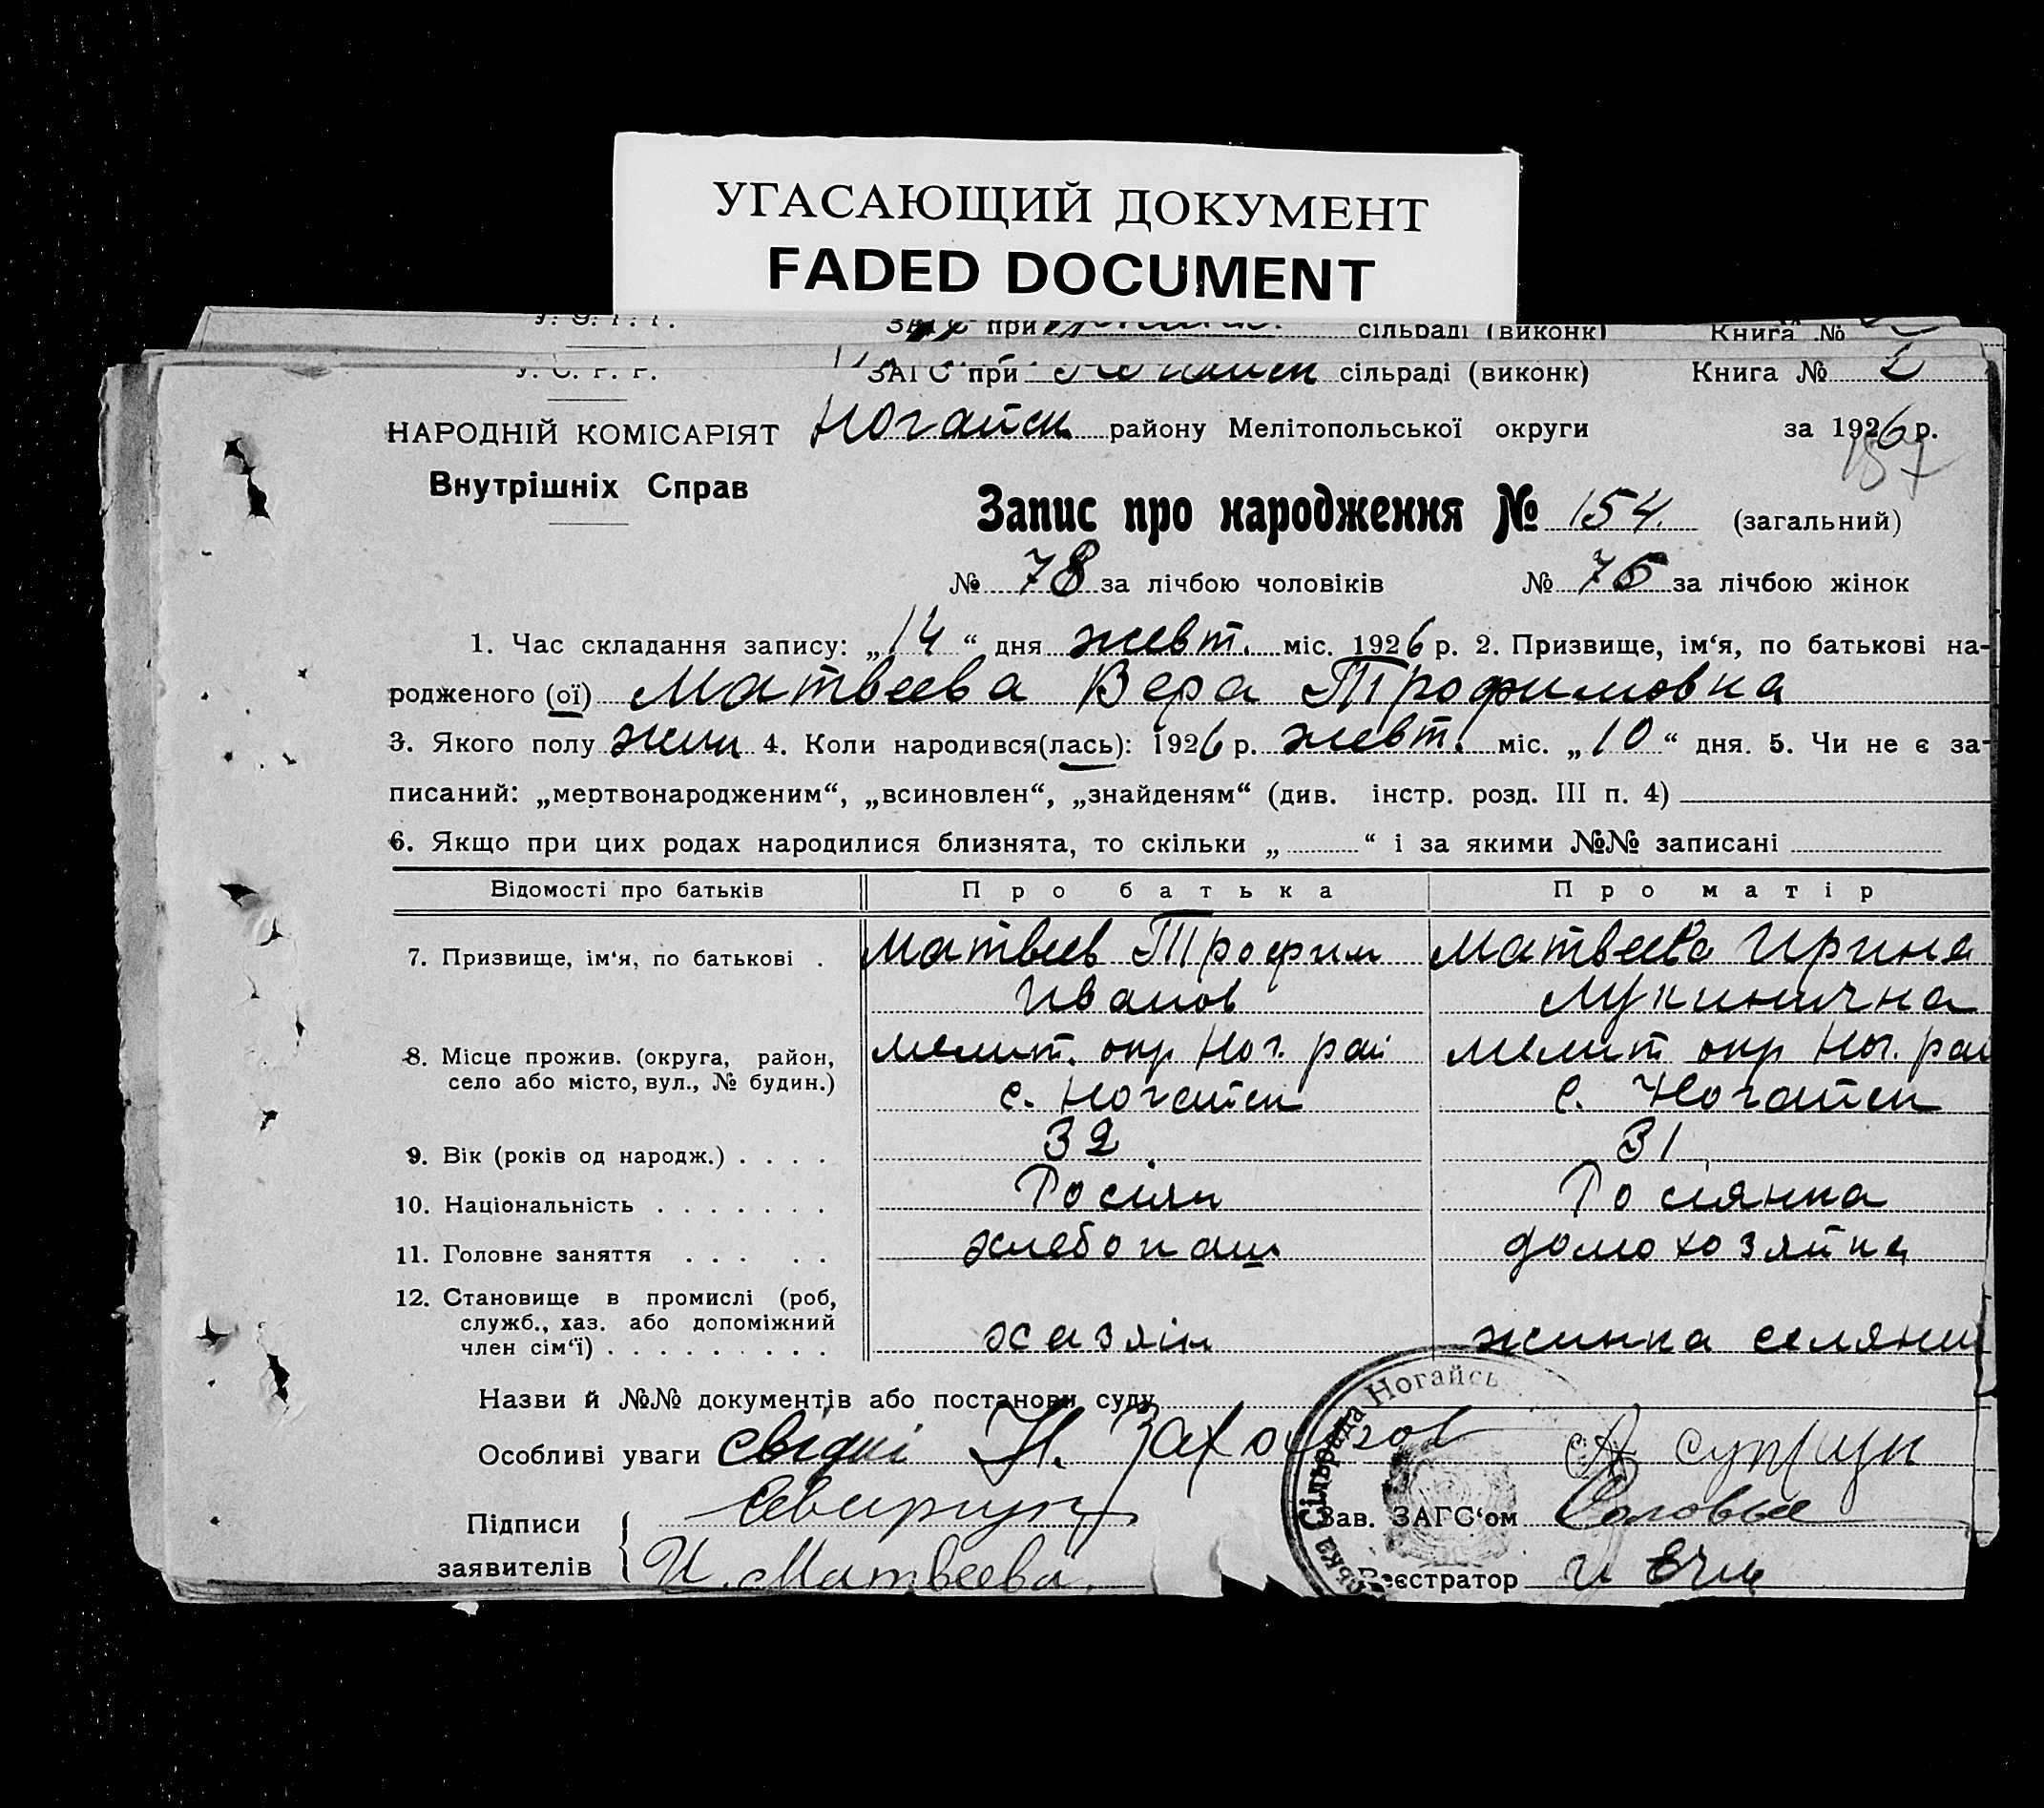 УГАСАЮЩИЙ ДОКУМЕНТ
FADED DOCUMENT
У. С. Р. Р. ЗАГС при сільраді (виконк) Книга №
У. С. Р. Р. ЗАГС при Ногайск сільраді (виконк) Книга № 2
НАРОДНІЙ КОМІСАРІЯТ Ногайск району Мелітопольської округи за 1926 р.
Внутрішніх Справ 157
Запис про народження № 154. (загальний)
№ 78 за лічбою чоловіків № 76 за лічбою жінок
1. Час складання запису: „14“ дня жовт. міс. 1926 р. 2. Призвище, ім‘я, по батькові на-
родженого (ої) Матвеева Вера Трофимовна
3. Якого полу жин 4. Коли народився(лась): 1926 р. жовт. міс. „10“ дня. 5. Чи не є за-
писаний: „мертвонародженим“, „всиновлен“, „знайденям“ (див. інстр. розд. III п. 4)
6. Якщо при цих родах народилися близнята, то скільки „ “ і за якими №№ записані
Відомості про батьків Про батька Про матір
7. Призвище, ім‘я, по батькові . Матвеев Трофим Матвеева Ирина
Иванов Лукинична
8. Місце прожив. (округа, район, мелит. окр Ног. рай мелит окр Ног. рай
село або місто, вул., № будин.) с. Ногайск с. Ногайск
9. Вік (років од народж.) . . . . 32 31
10. Національність . . . . . . . Росіян Росіянка
11. Головне заняття . . . . . хлебопаш домохозяйка
12. Становище в промислі (роб,
служб., хаз. або допоміжний
член сім‘ї) . . . . . . . . . хазяін жинка селянин
Назви й №№ документів або постанови суду
Особливі уваги свідки Н. А супрун
Підписи Зав. ЗАГС‘ом
заявителів И. Матвеева Реєстратор
ька Сільрада Ногайсь